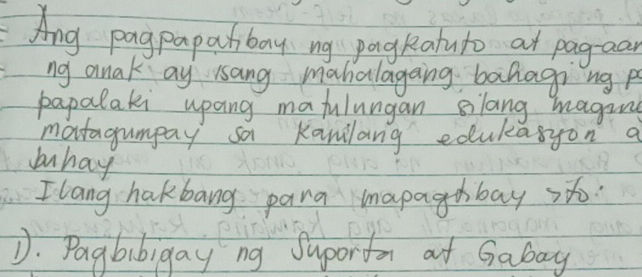 Ang pagpapatibay ng pagkatuto at pag-aar
ng anak ay isang mahalagang bahagi ng p
papalaki upang matulungan silang maging
matagumpay sa kanilang edukasyon a
buhay
Ilang hakbang para mapagtibay ito:
1). Pagbibigay ng Suporta at Gabay